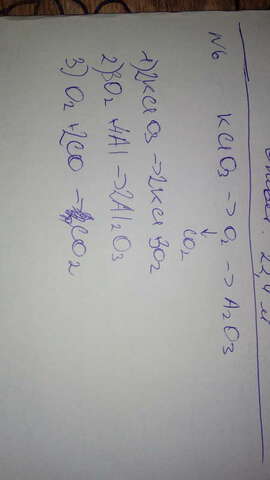 Ответ: 22,4 л
№6
KClO3 → O2 → A2O3
↓
CO2
1) 2KClO3 → 2KCl 3O2
2) 3O2 + 4Al → 2Al2O3
3) O2 + 2CO → CO2